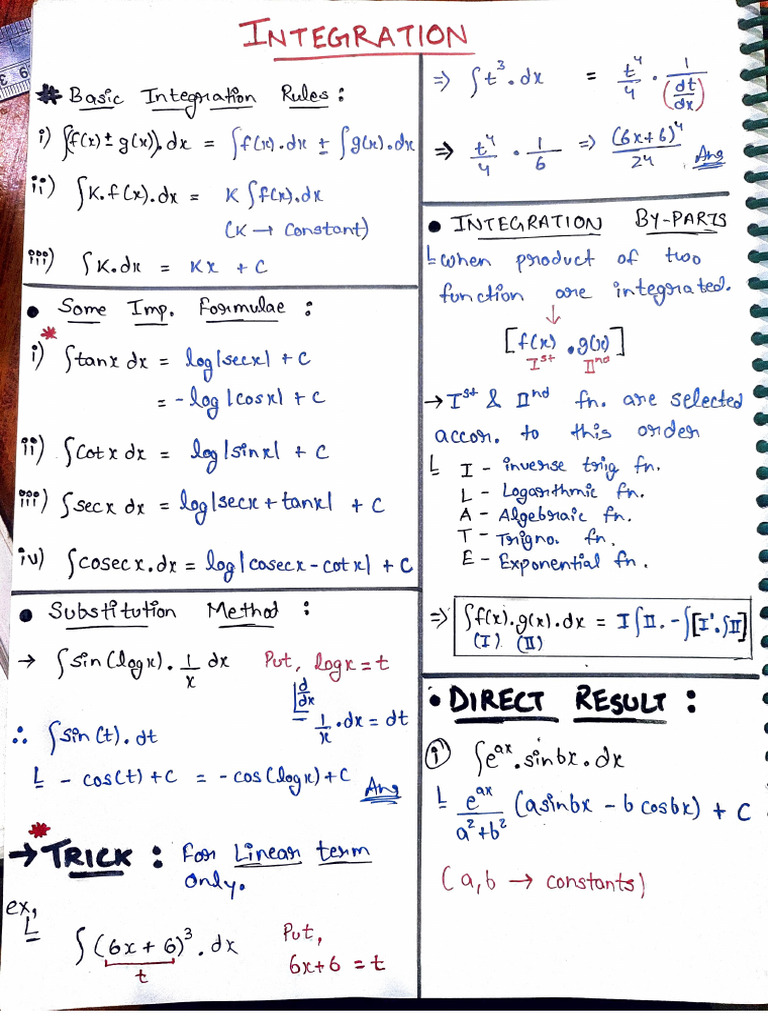 INTEGRATION
# Basic Integration Rules :
i) ∫(f(x) ± g(x)).dx = ∫f(x).dx ± ∫g(x).dx
ii) ∫K.f(x).dx = K ∫f(x).dx
(K → Constant)
iii) ∫K.dx = Kx + C
• Some Imp. Formulae :
* i) ∫tanx dx = log|secx| + C
= -log|cosx| + C
ii) ∫cotx dx = log|sinx| + C
iii) ∫secx dx = log|secx + tanx| + C
iv) ∫cosecx.dx = log|cosecx - cotx| + C
• Substitution Method :
→ ∫sin(logx).1/x dx Put, logx = t
d/dx
1/x.dx = dt
∴ ∫sin(t).dt
-cos(t) + C = -cos(logx) + C Ans
* → TRICK : For Linear term
only.
ex,
∫(6x+6)³.dx Put,
t 6x+6 = t
⇒ ∫t³.dx = t⁴/4 . 1/(dt/dx)
⇒ t⁴/4 . 1/6 ⇒ (6x+6)⁴/24 Ans
• INTEGRATION BY-PARTS
when product of two
function are integrated.
↓
[f(x).g(x)]
Iˢᵗ IIⁿᵈ
→ Iˢᵗ & IIⁿᵈ fn. are selected
accor. to this order
I - inverse trig fn.
L - Logarithmic fn.
A - Algebraic fn.
T - Trigno. fn.
E - Exponential fn.
⇒ ∫f(x).g(x).dx = I∫II.-∫[I'.∫II]
(I) (II)
• DIRECT RESULT :
(i) ∫eᵃˣ.sinbx.dx
eᵃˣ/a²+b² (asinbx - bcosbx) + C
(a,b → constants)